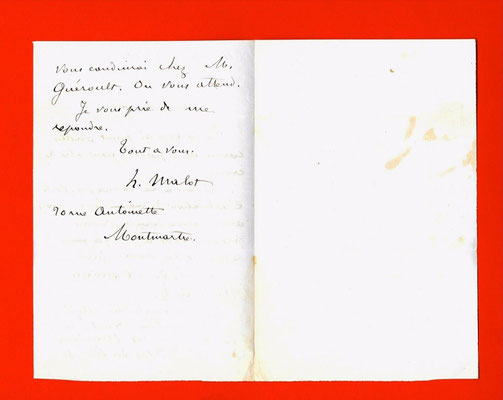 vous conduirai chez M.
Guéroult. On vous attend.
Je vous prie de me
repondre.
Tout a vous.
h. Malot
rue Antoinette
Montmartre.